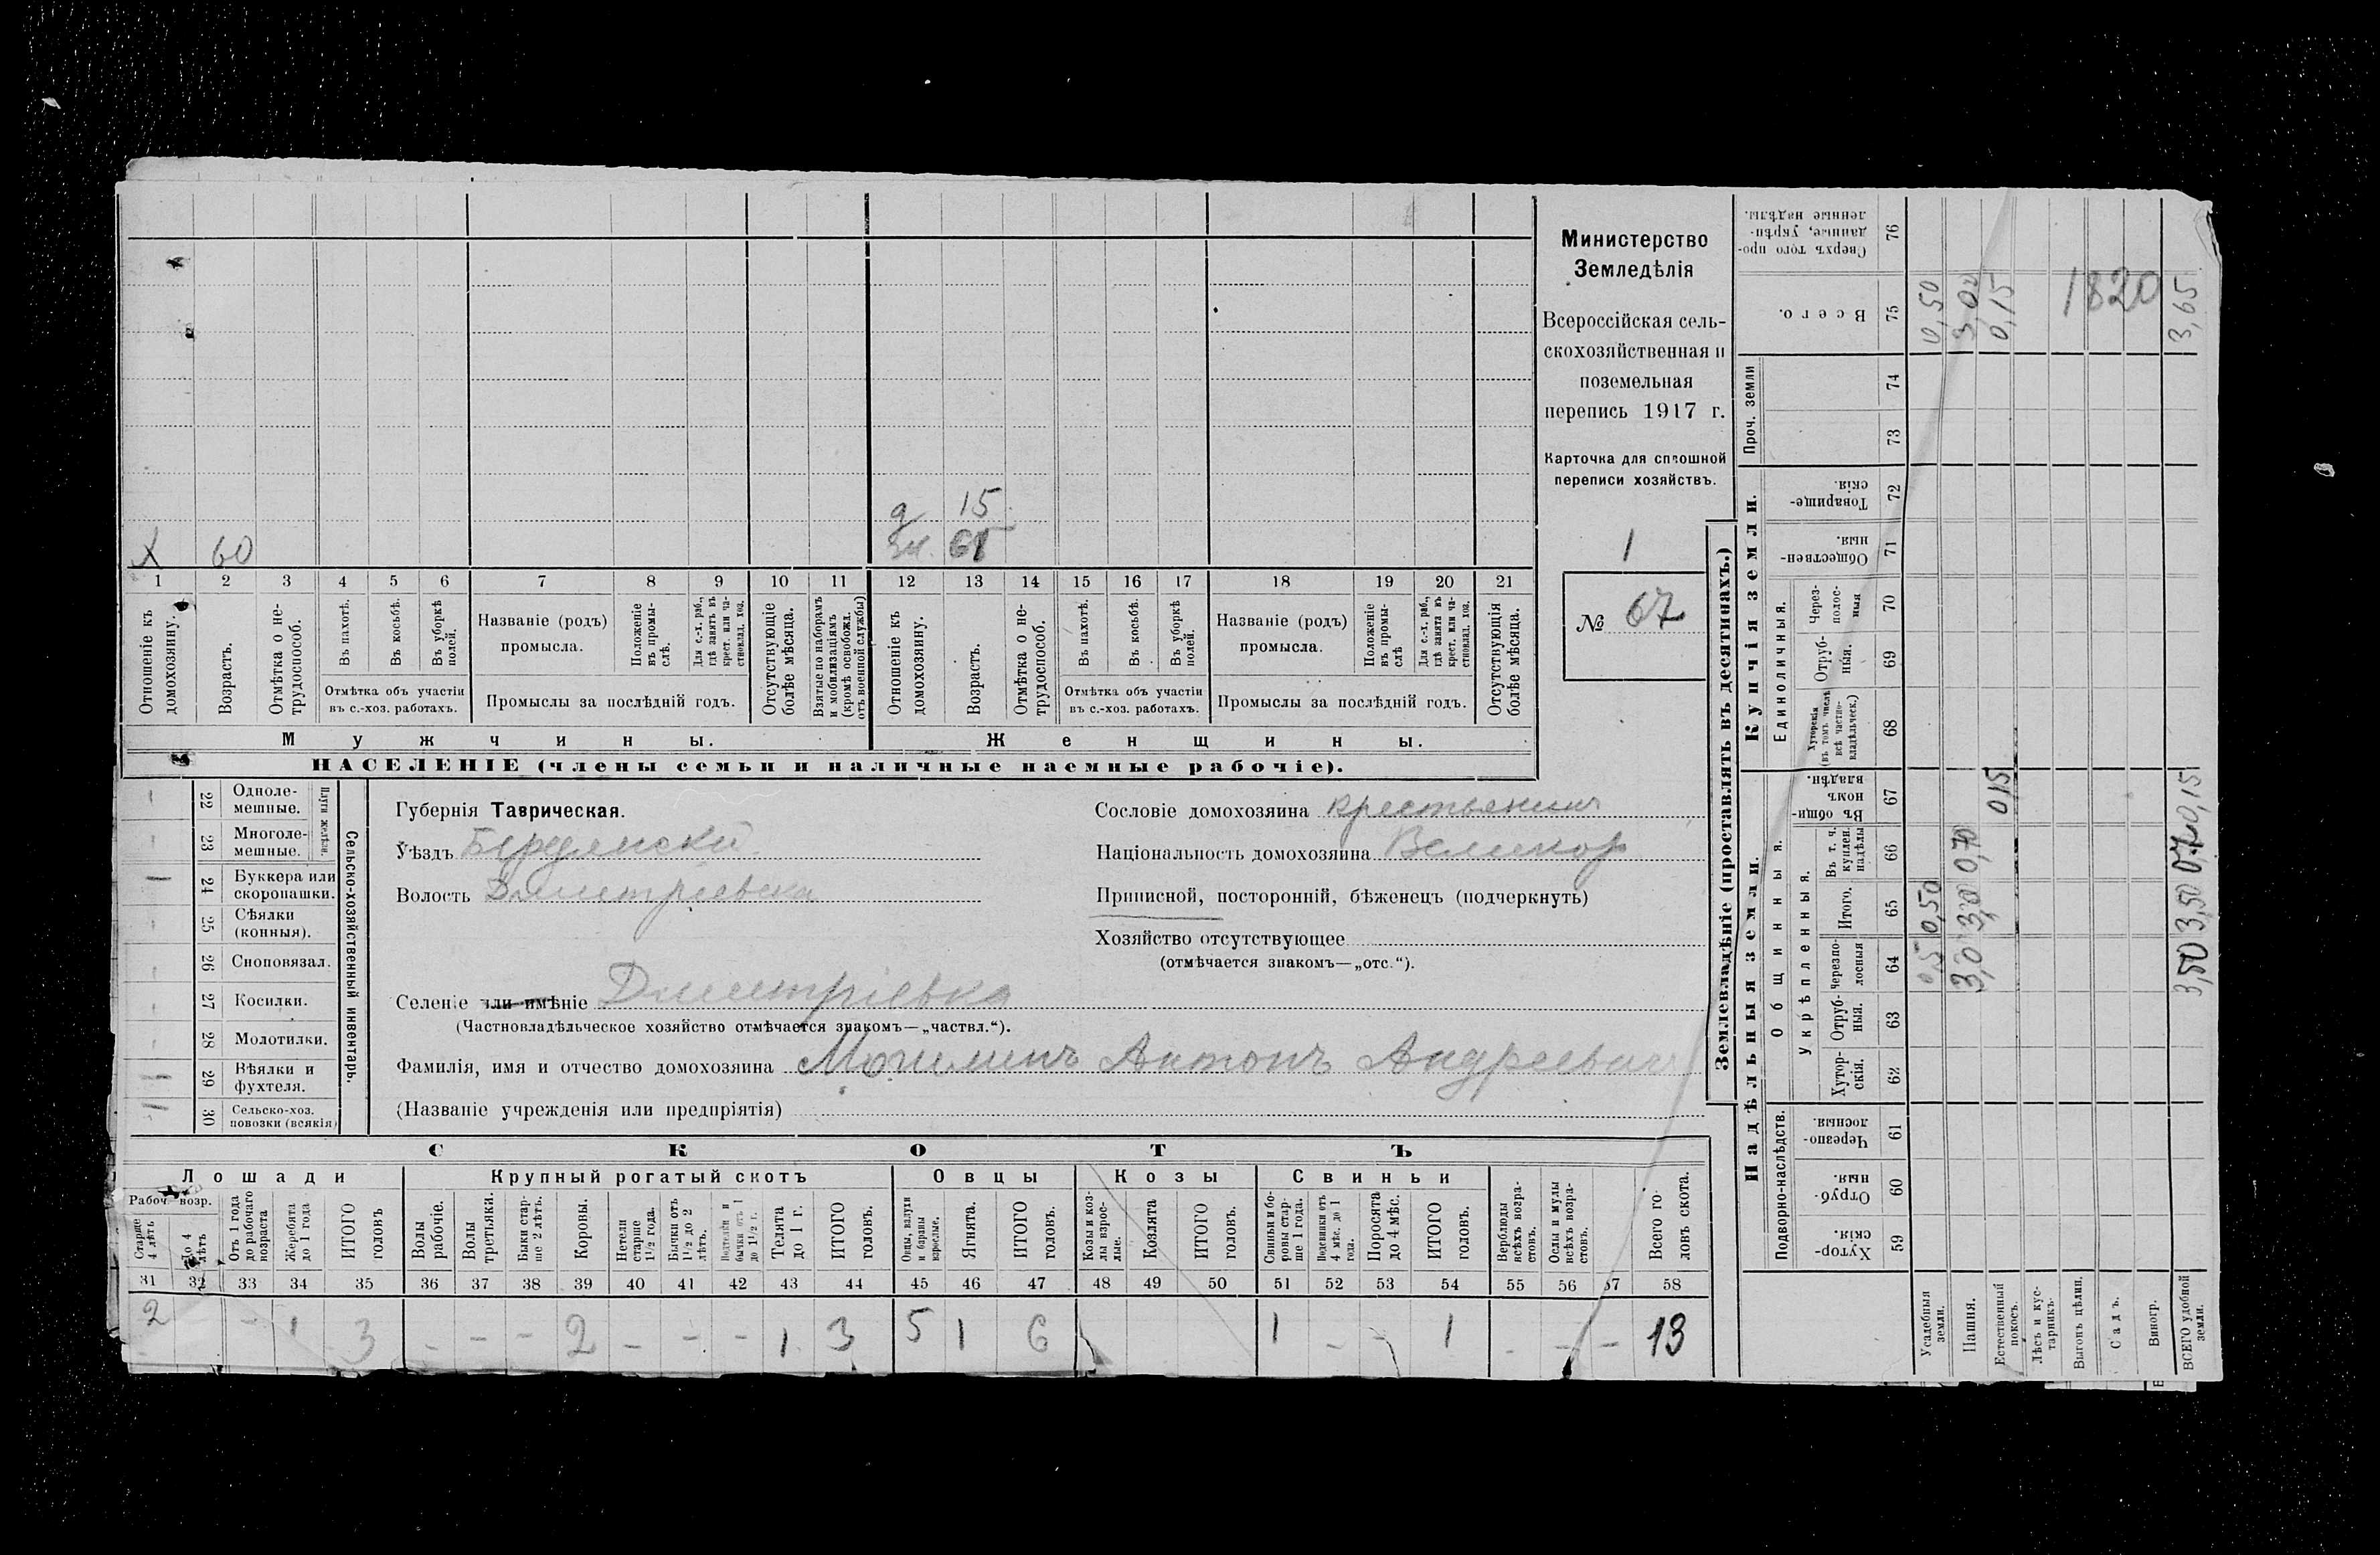 Министерство
Земледѣлія
Всероссійская сель-
скохозяйственная и
поземельная
перепись 1917 г.
Карточка для сплошной
переписи хозяйствъ.
1
№ 67
д 15
Х 60
жн. 61
1 2 3 4 5 6 7 8 9 10 11 12 13 14 15 16 17 18 19 20 21
Отношеніе къ домохозяину.
Возрастъ.
Отмѣтка о не-трудоспособ.
Въ пахотѣ.
Въ косьбѣ.
Въ уборкѣ полей.
Отмѣтка объ участіи
въ с.-хоз. работахъ.
Названіе (родъ)
промысла.
Положеніе въ промы-слѣ.
Для с.-х. раб., гдѣ занятъ въ крест. или ча-стновлад. хоз.
Промыслы за послѣдній годъ.
Отсутствующіе болѣе мѣсяца.
Взятые по наборамъ и мобилизаціямъ (кромѣ освобожд. отъ военной службы)
Отношеніе къ домохозяину.
Возрастъ.
Отмѣтка о не-трудоспособ.
Въ пахотѣ.
Въ косьбѣ.
Въ уборкѣ полей.
Отмѣтка объ участіи
въ с.-хоз. работахъ.
Названіе (родъ)
промысла.
Положеніе въ промы-слѣ
Для с.-х. раб., гдѣ занята въ крест. или ча-стновлад. хоз.
Промыслы за послѣдній годъ.
Отсутствующія болѣе мѣсяца.
Мужчины.
Женщины.
НАСЕЛЕНІЕ (члены семьи и наличные наемные рабочіе).
22 Одноле-мешные.
23 Многоле-мешные.
Плуги желѣзн.
24 Буккера или скоропашки.
25 Сѣялки (конныя).
26 Сноповязал.
27 Косилки.
28 Молотилки.
29 Вѣялки и фухтеля.
30 Сельско-хоз. повозки (всякія)
Сельско-хозяйственный инвентарь.
Губернія Таврическая.
Уѣздъ Бердянскй
Волость Дмитріевска
Селеніе или имѣніе Дмитріевка
(Частновладѣльческое хозяйство отмѣчается знакомъ—„частвл.“).
Фамилія, имя и отчество домохозяина Могилинъ Антонъ Андреевич
(Названіе учрежденія или предпріятія)
Сословіе домохозяина крестьянинъ
Національность домохозяина Великор
Приписной, посторонній, бѣженецъ (подчеркнуть)
Хозяйство отсутствующее
(отмѣчается знакомъ—„отс.“).
СКОТЪ
Лошади
Крупный рогатый скотъ
Овцы
Козы
Свиньи
Рабоч. возр.
Старше 4 лѣтъ
До 4 лѣтъ
Отъ 1 года до рабочаго возраста
Жеребята до 1 года
ИТОГО головъ
Волы рабочіе.
Волы третьяки.
Быки стар-ше 2 лѣтъ.
Коровы.
Нетели старше 1½ года.
Бычки отъ 1½ до 2 лѣтъ.
Подтелки и бычки отъ 1 до 1½ г.
Телята до 1 г.
ИТОГО головъ.
Овцы, валухи и бараны взрослые.
Ягнята.
ИТОГО головъ.
Козы и коз-лы взрос-лые.
Козлята
ИТОГО головъ.
Свиньи и бо-ровы стар-ше 1 года.
Подсвинки отъ 4 мѣс. до 1 года.
Поросята до 4 мѣс.
ИТОГО головъ.
Верблюды всѣхъ возра-стовъ.
Ослы и мулы всѣхъ возра-стовъ.
Всего го-ловъ скота.
31 32 33 34 35 36 37 38 39 40 41 42 43 44 45 46 47 48 49 50 51 52 53 54 55 56 57 58
2 - - 1 3 - - - 2 - - - 1 3 5 1 6 1 - - 1 - - - 13
Землевладѣніе (проставлять въ десятинахъ.)
Надѣльныя земли.
Купчія земли.
Проч. земли
Подворно-наслѣдств.
Общинныя.
Укрѣпленныя.
Единоличныя.
Хутор-скія. 59
Отруб-ныя. 60
Черезпо-лосныя. 61
Хутор-скія. 62
Отруб-ныя. 63
Черезпо-лосныя 64
Итого. 65
Въ т. ч. куплен. надѣлы 66
Въ общи-номъ владѣн. 67
Хуторскія (въ томъ числѣ всѣ частно-владѣльческ.) 68
Отруб-ныя. 69
Через-полос-ныя 70
Обществен-ныя. 71
Товарище-скія. 72
73
74
Всего. 75
Сверхъ того про-данные, укрѣп-ленные надѣлы. 76
Усадебныя земли. 0,5 0,50 0,50
Пашня. 3,0 3,00 0,70 3,00
Естественный покосъ. 015 0,15
Лѣсъ и кус-тарникъ.
Выгонъ цѣлин.
Садъ.
Виногр.
ВСЕГО удобной земли. 3,50 3,50 0,70 0,15 3,65
1820